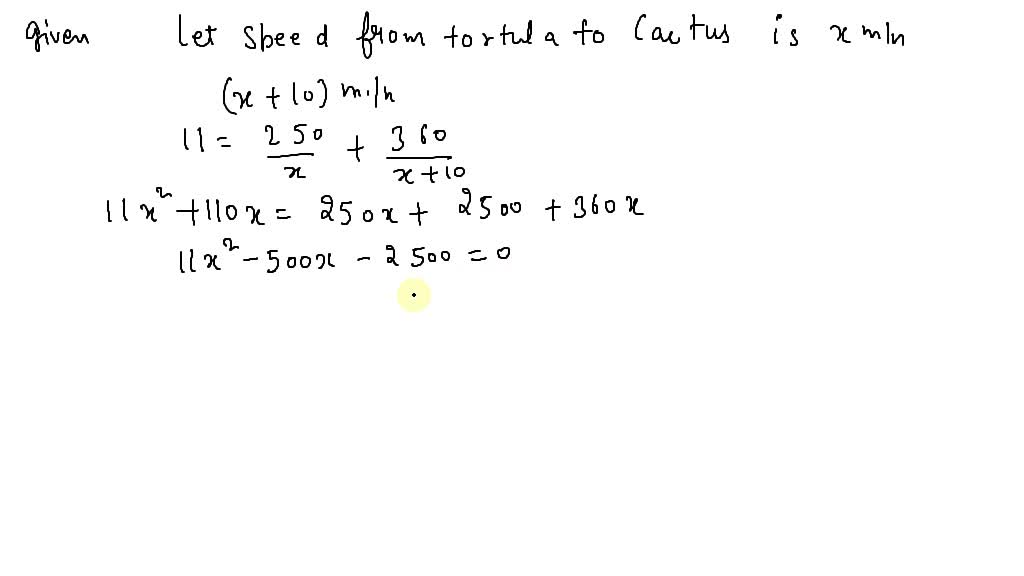 given Let Speed from tortula to Cactus is x m/h
(x + 10) m/h
11 = 250/x + 360/x+10
11x² + 110x = 250x + 2500 + 360x
11x² - 500x - 2500 = 0